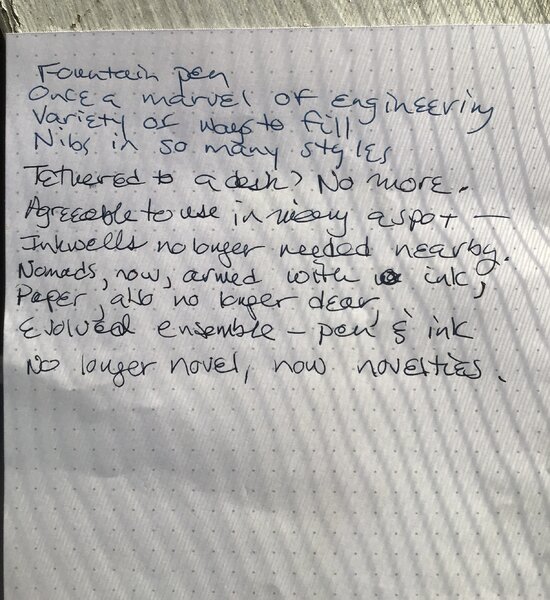 Fountain pen
Once a marvel of engineering
Variety of ways to fill
Nibs in so many styles
Tethered to a desk? No more.
Agreeable to use in many a spot —
Inkwells no longer needed nearby.
Nomads, now, armed with ink,
Paper, also no longer dear,
Evolved ensemble – pen & ink
No longer novel, now novelties.